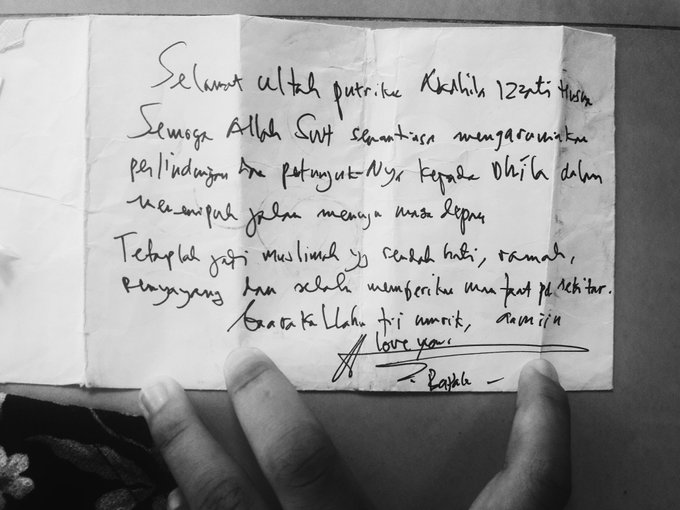 Selamat ultah putriku Izzati
Semoga Allah Swt senantiasa mengaruniakan
perlindungan dan petunjuk-Nya kepada Dhila dalam
menempuh jalan menuju masa depan
Tetaplah jadi muslimah yg rendah hati, ramah,
penyayang dan selalu memberikan manfaat pd sekitar.
Baarakallahu fii umrik, aamiin
love you